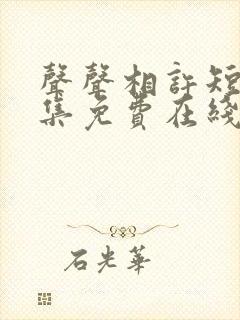 聲聲相許短
集免費在綫
石光華